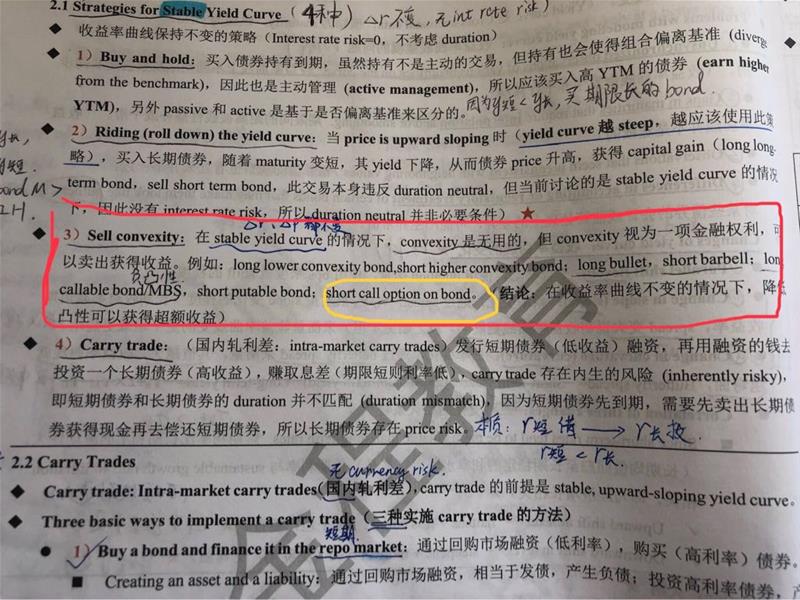 2.1 Strategies for Stable Yield Curve (4种) Δr不变, 无int rate risk)
◆ 收益率曲线保持不变的策略 (Interest rate risk=0, 不考虑 duration)
◆ 1) Buy and hold: 买入债券持有到期, 虽然持有不是主动的交易, 但持有也会使得组合偏离基准 (diverge
from the benchmark), 因此也是主动管理 (active management), 所以应该买入高 YTM 的债券 (earn higher
YTM), 另外 passive 和 active 是基于是否偏离基准来区分的。因为y短<y长, 买期限长的bond.
◆ 2) Riding (roll down) the yield curve: 当 price is upward sloping 时 (yield curve 越 steep, 越应该使用此策
略), 买入长期债券, 随着 maturity 变短, 其 yield 下降, 从而债券 price 升高, 获得 capital gain (long long-
term bond, sell short term bond, 此交易本身违反 duration neutral, 但当前讨论的是 stable yield curve 的情况
下, 因此没有 interest rate risk, 所以 duration neutral 并非必要条件) ★
◆ 3) Sell convexity: 在 stable yield curve 的情况下, convexity 是无用的, 但 convexity 视为一项金融权利, 可
以卖出获得收益。例如: long lower convexity bond,short higher convexity bond; long bullet, short barbell; lon
负凸性
callable bond/MBS, short putable bond; short call option on bond。 (结论: 在收益率曲线不变的情况下, 降低
凸性可以获得超额收益)
◆ 4) Carry trade: (国内轧利差: intra-market carry trades) 发行短期债券 (低收益) 融资, 再用融资的钱去
投资一个长期债券 (高收益), 赚取息差 (期限短则利率低), carry trade 存在内生的风险 (inherently risky),
即短期债券和长期债券的 duration 并不匹配 (duration mismatch), 因为短期债券先到期, 需要先卖出长期债
券获得现金再去偿还短期债券, 所以长期债券存在 price risk。 本质: r短借 → r长投
r短 < r长.
2.2 Carry Trades 无currency risk.
◆ Carry trade: Intra-market carry trades(国内轧利差), carry trade 的前提是 stable, upward-sloping yield curve。
◆ Three basic ways to implement a carry trade (三种实施 carry trade 的方法)
短期
● 1) Buy a bond and finance it in the repo market: 通过回购市场融资 (低利率), 购买 (高利率) 债券。
■ Creating an asset and a liability: 通过回购市场融资, 相当于发债, 产生负债; 投资高利率债券, 产
金程教育